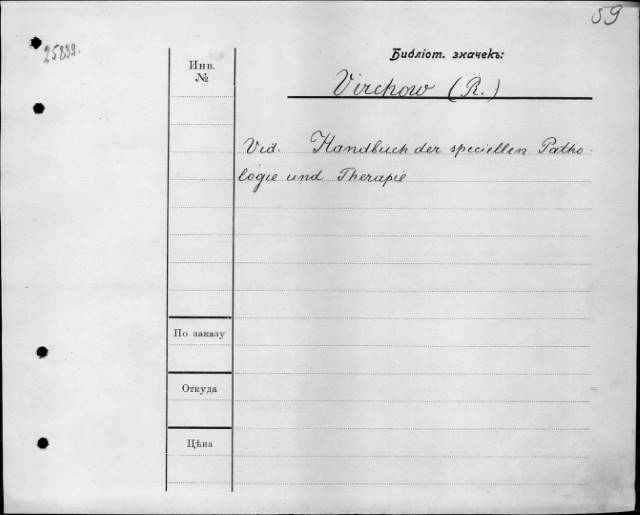 59
25899.
Библіот. значекъ:
Инв.
№
Virchow (R.)
Vid. Handbuch der speciellen Patho-
logie und Therapie
По заказу
Откуда
Цѣна